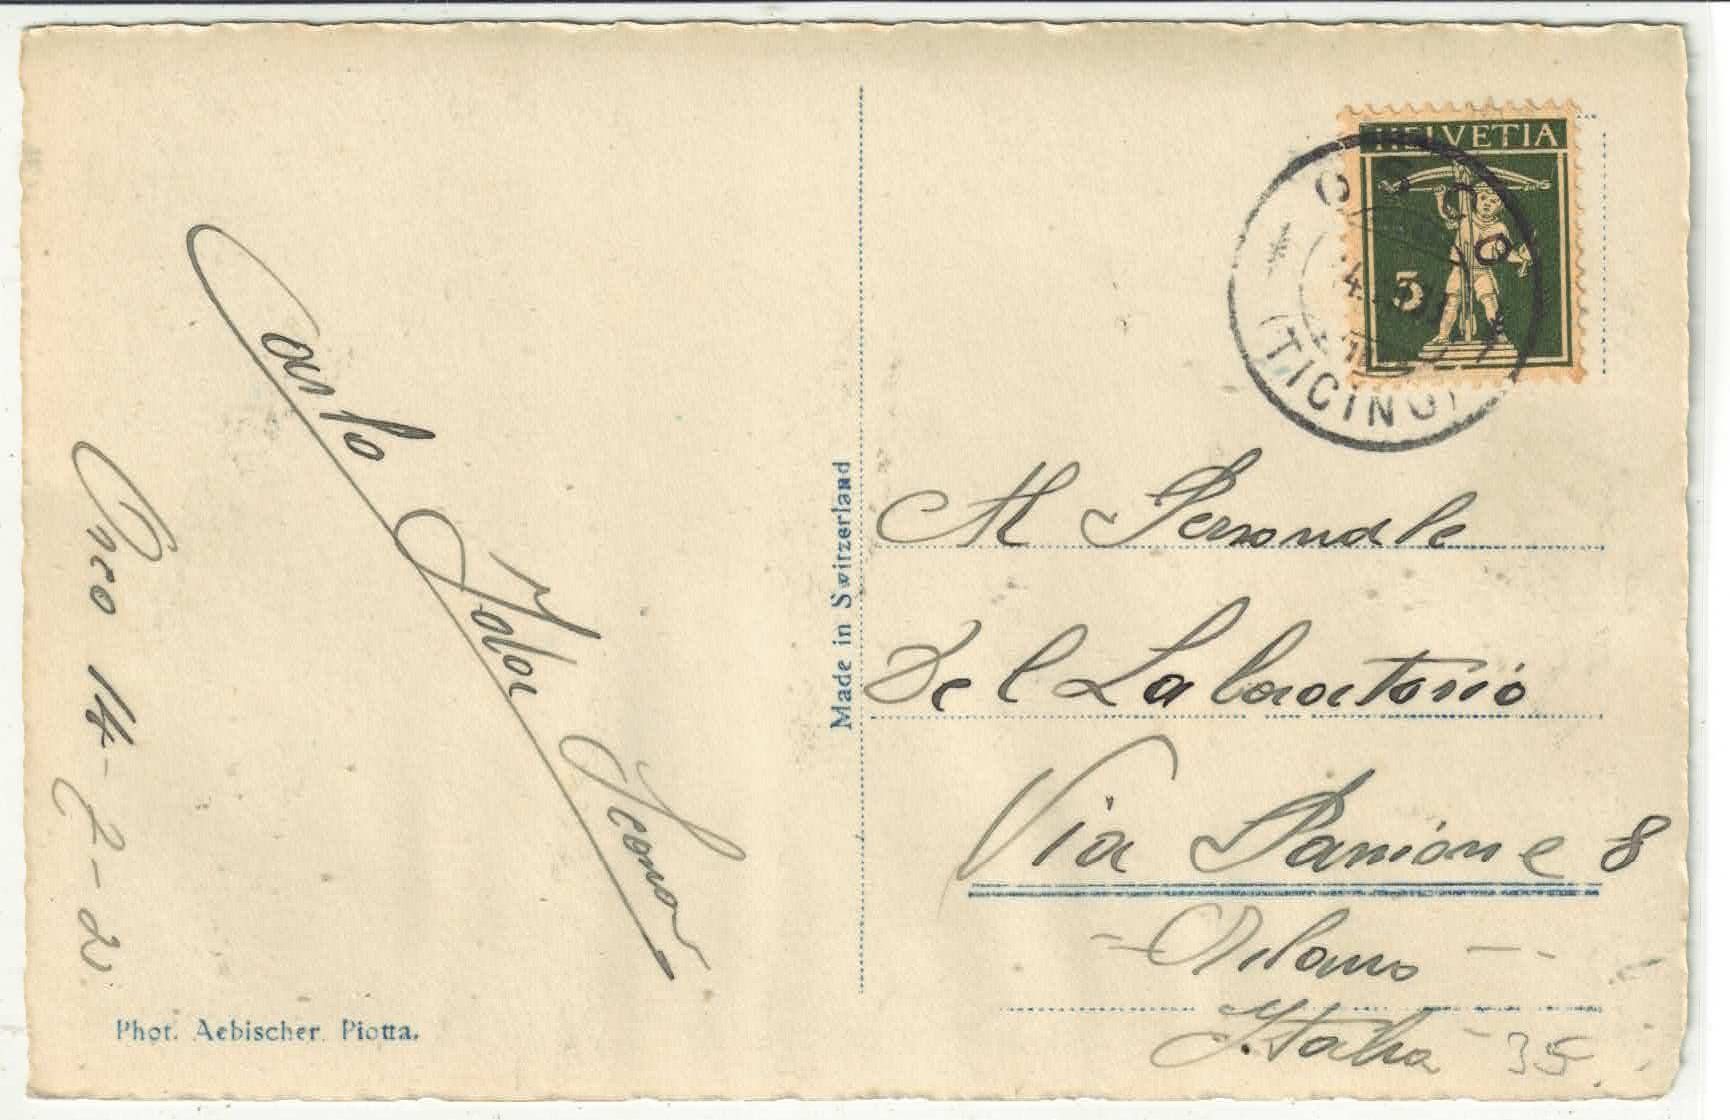 HELVETIA
5
(TICINO)
Carlo
14-2-
Al Personale
Del Laboratorio
Via Panione 8
- Milano -
Italia
35
Made in Switzerland
Phot. Aebischer Piotta.